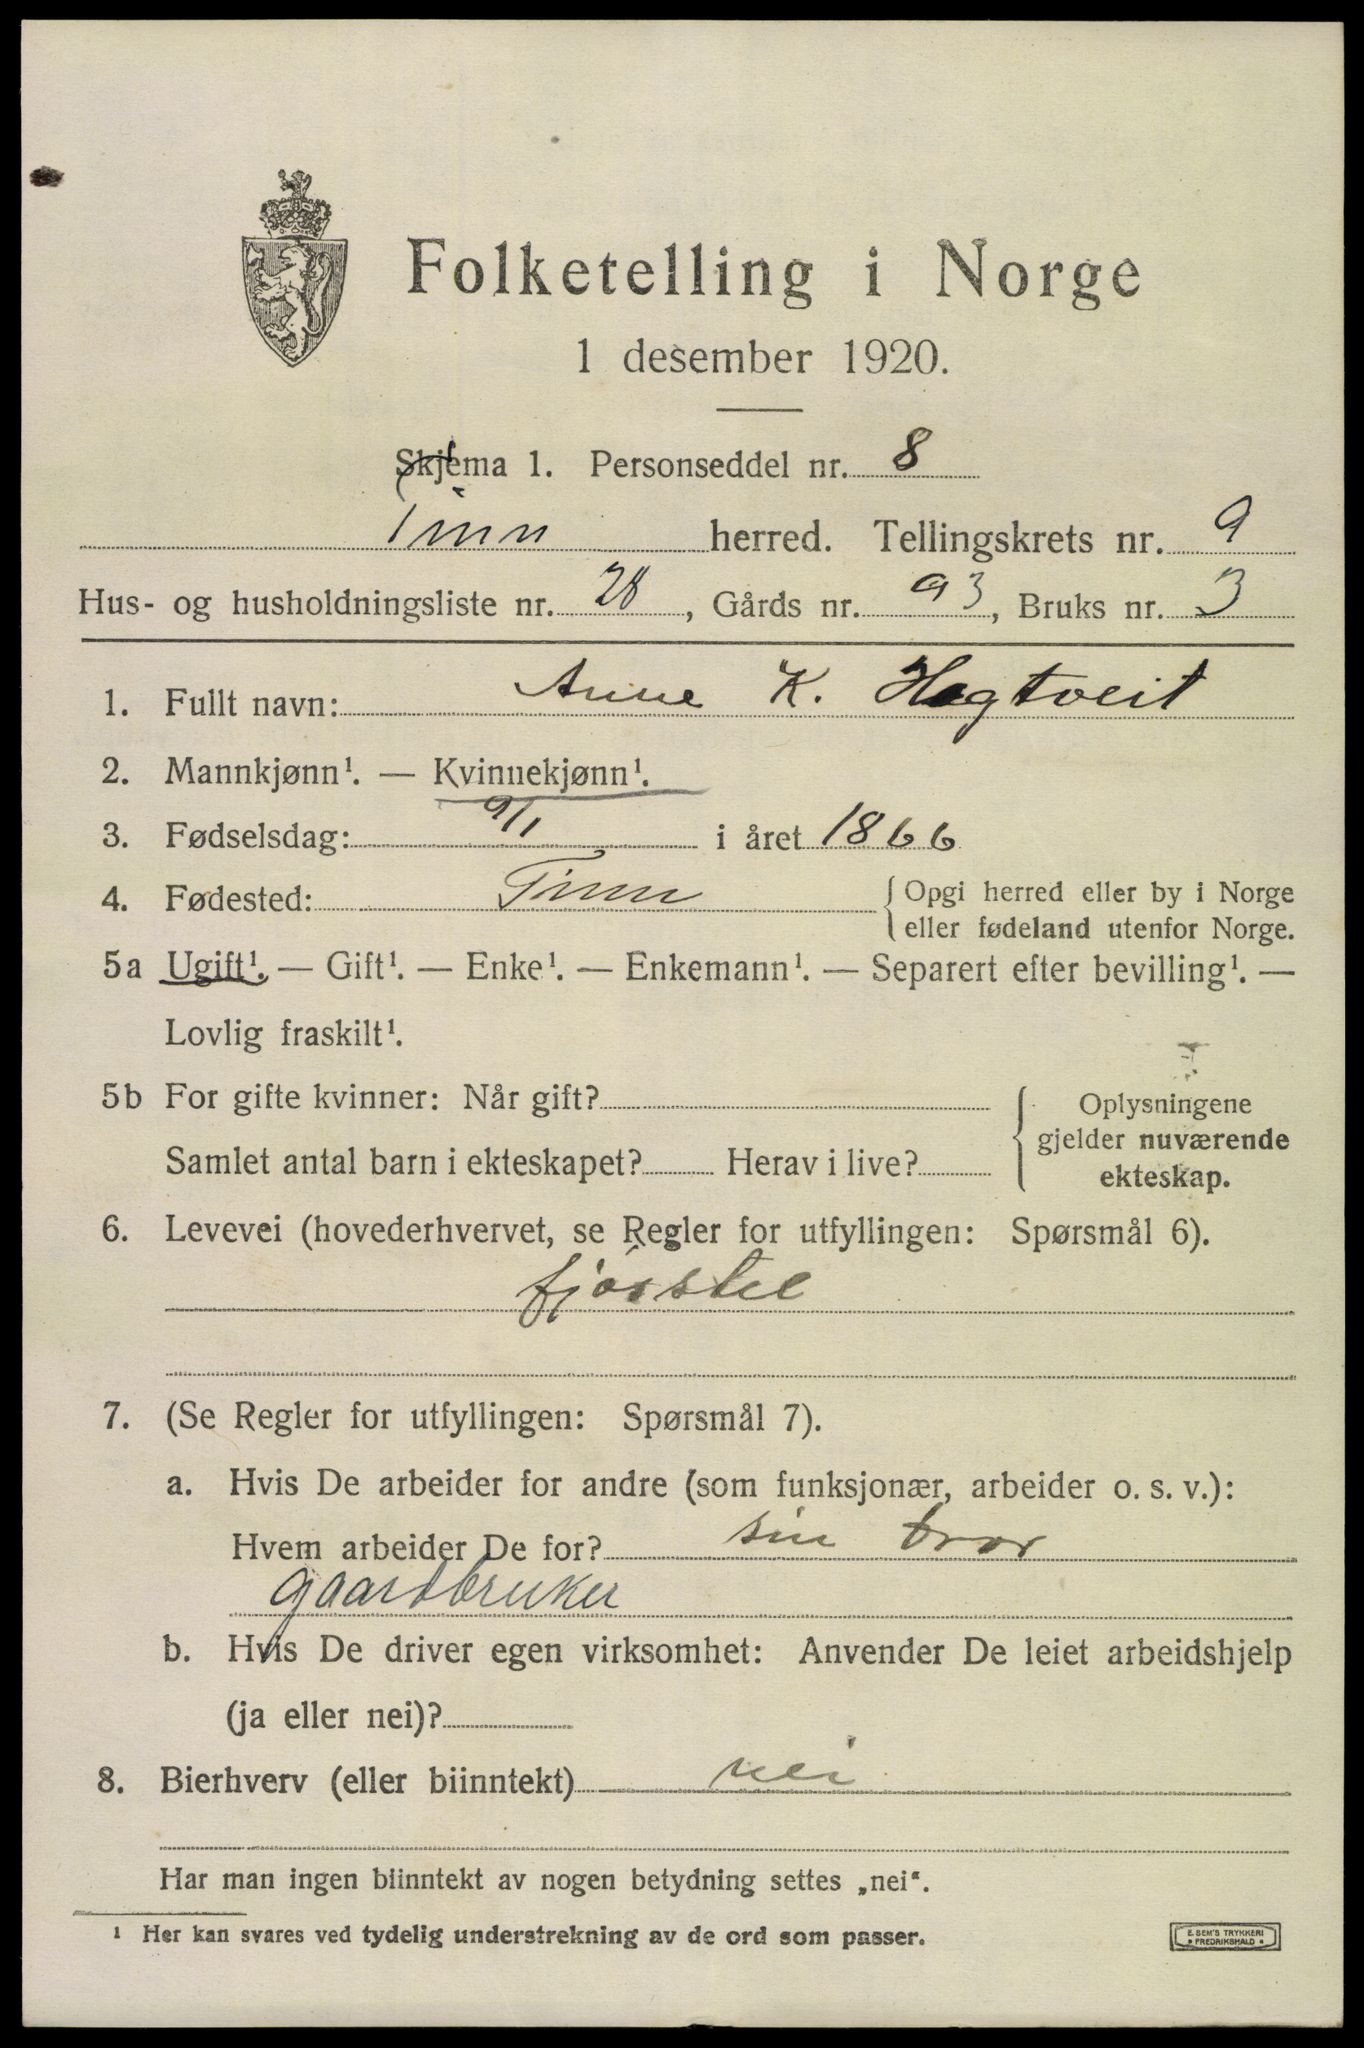 Folketelling i Norge
1 desember 1920.
Skjema 1. Personseddel nr. 8
Tinn herred. Tellingskrets nr. 9
Hus- og husholdningsliste nr. 28, Gårds nr. 93, Bruks nr. 3
1. Fullt navn: Anne K. Hogtveit
2. Mannkjønn¹. — Kvinnekjønn¹.
3. Fødselsdag: 9/1 i året 1866
4. Fødested: Tinn {Opgi herred eller by i Norge
eller fødeland utenfor Norge.
5a Ugift¹. — Gift¹. — Enke¹. — Enkemann¹. — Separert efter bevilling¹. —
Lovlig fraskilt¹.
5b For gifte kvinner: Når gift? Oplysningene
gjelder nuværende
Samlet antal barn i ekteskapet? Herav i live? ekteskap.
6. Levevei (hovederhvervet, se Regler for utfyllingen: Spørsmål 6).
fjösstel
7. (Se Regler for utfyllingen: Spørsmål 7).
a. Hvis De arbeider for andre (som funksjonær, arbeider o. s. v.):
Hvem arbeider De for? sin bror
gaardbruker
b. Hvis De driver egen virksomhet: Anvender De leiet arbeidshjelp
(ja eller nei)?
8. Bierhverv (eller biinntekt) nei
Har man ingen biinntekt av nogen betydning settes „nei“.
¹ Her kan svares ved tydelig understrekning av de ord som passer.
E. SEM'S TRYKKERI
FREDRIKSHALD